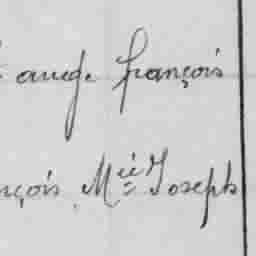 aug. françois
nçois, Mie Joseph